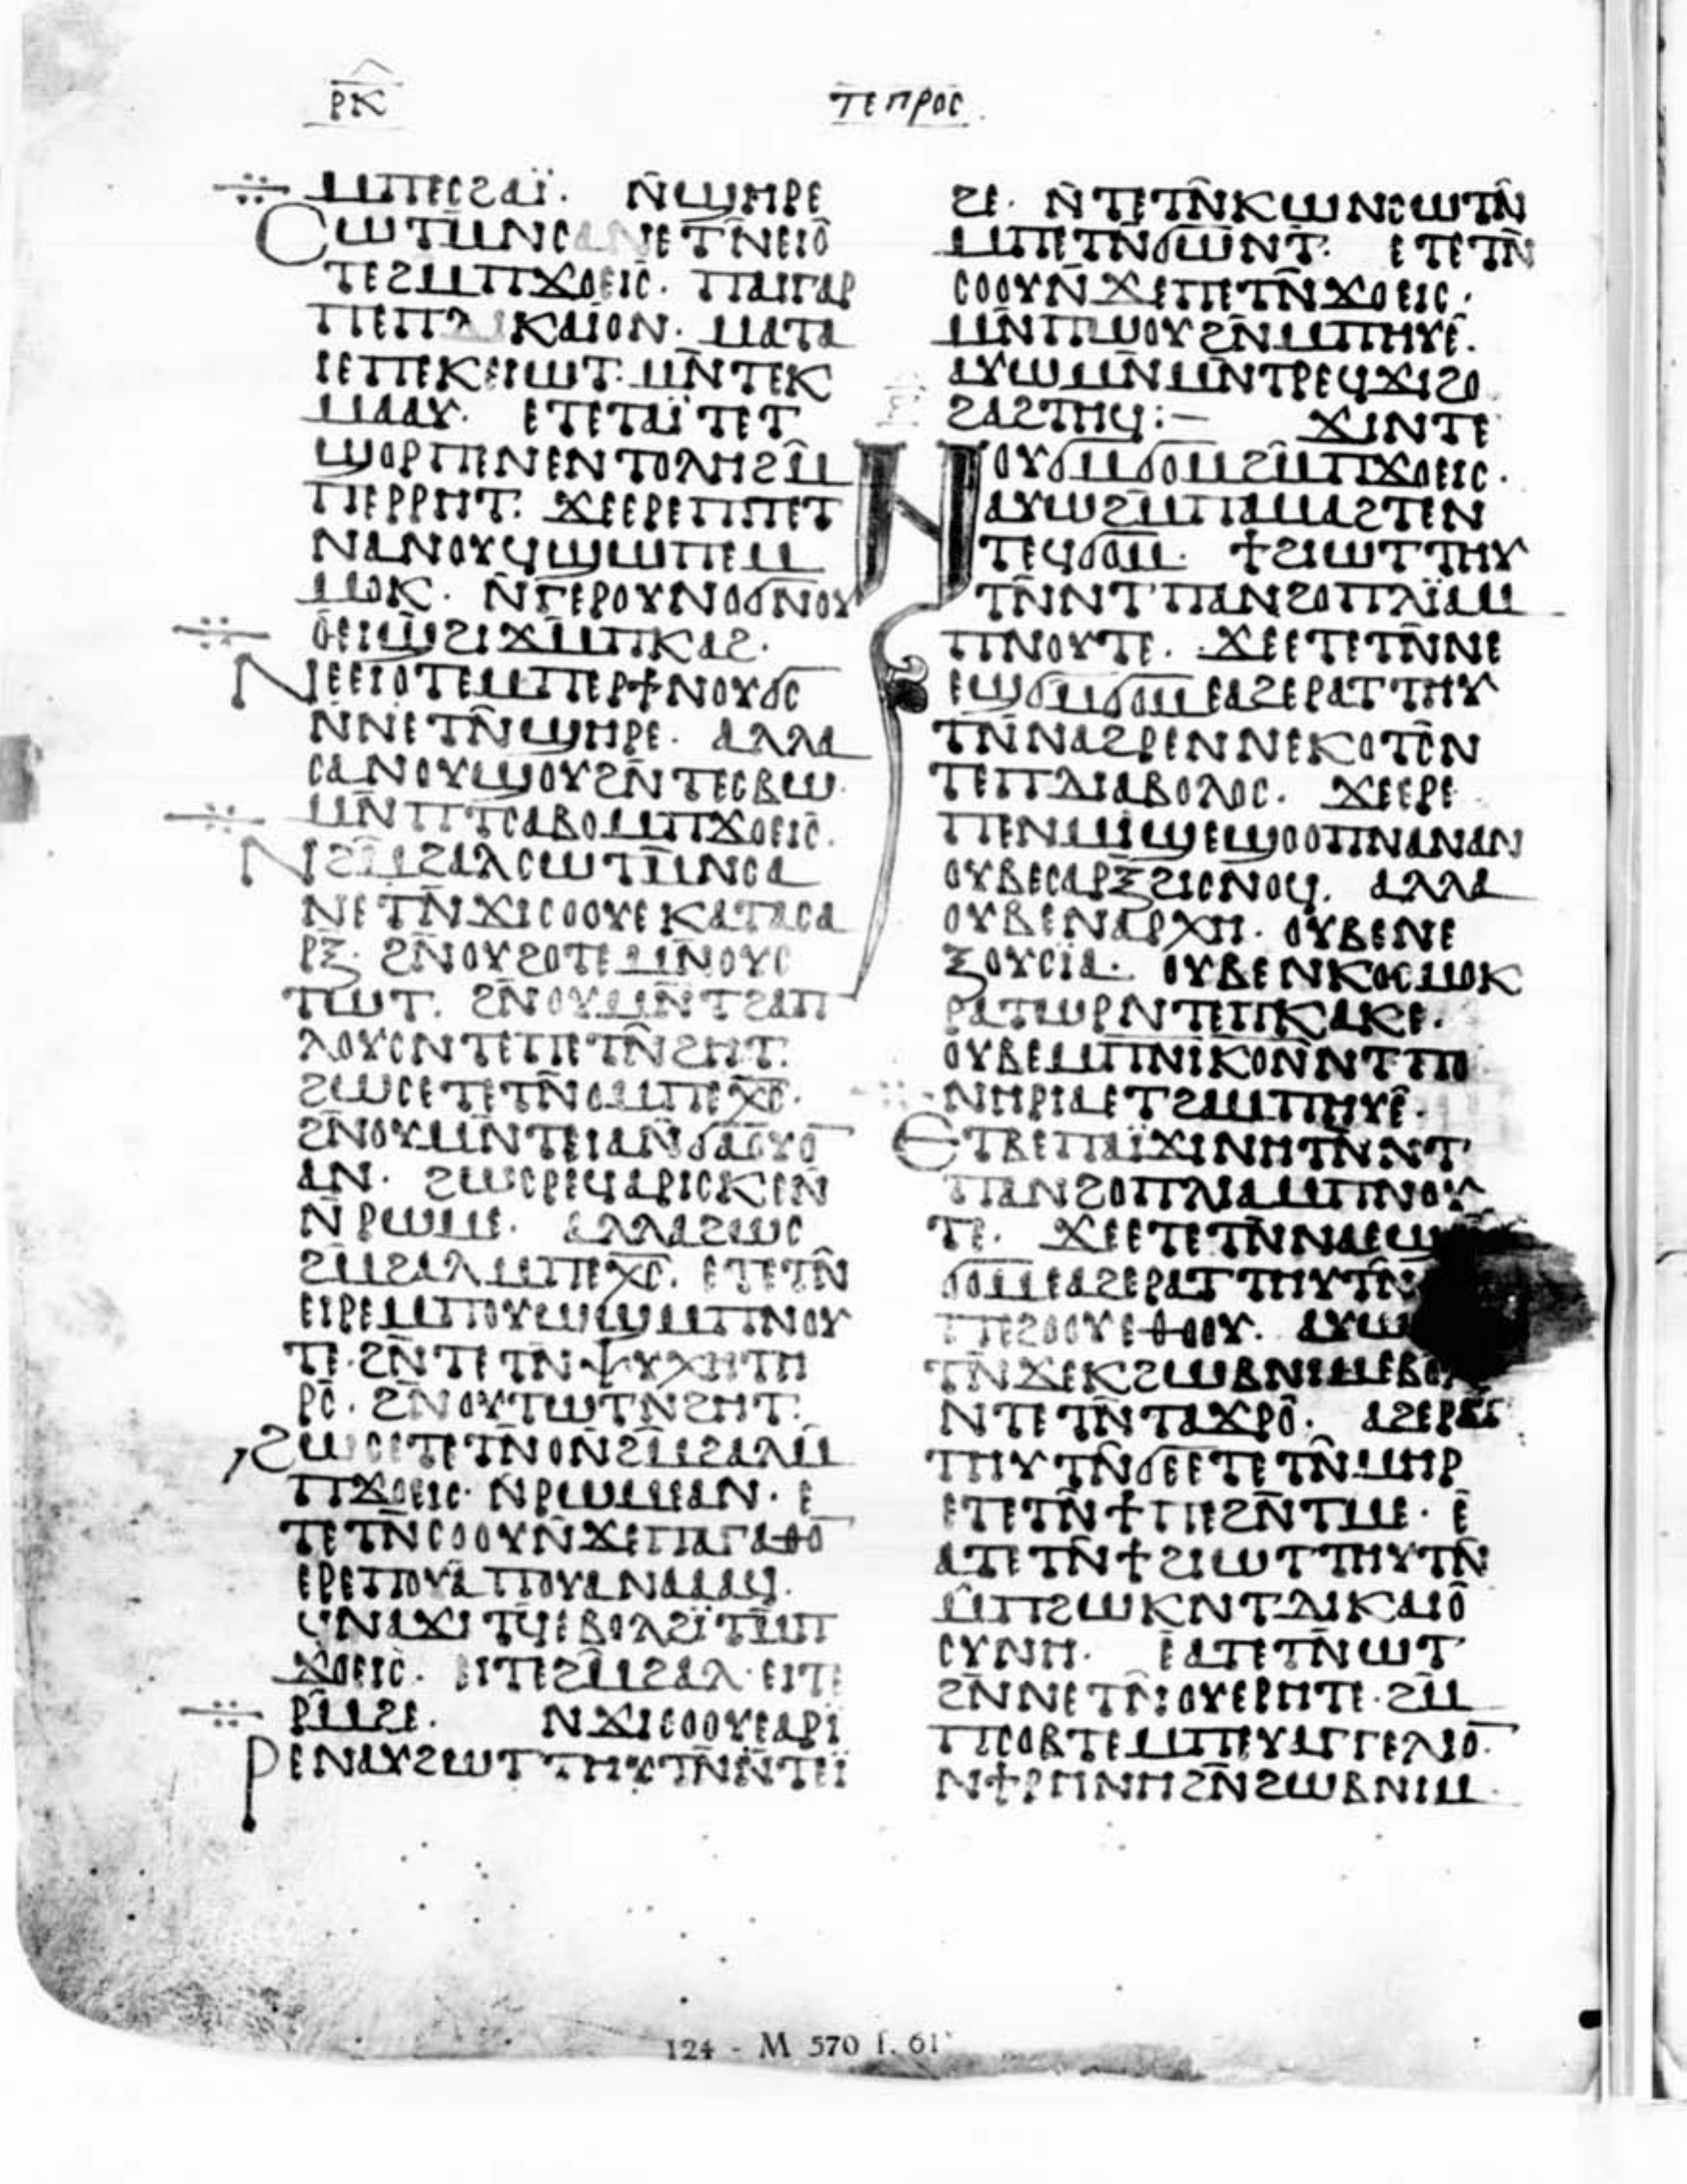 ⲣ̅ⲕ̅
ⲧⲉⲡⲣⲟⲥ
ⲙⲡⲉⲥϩⲁⲓ̈. ⲛ̄ϣⲏⲣⲉ
ⲥⲱⲧⲙ̄ⲛⲥⲁⲛⲉⲧⲛ̄ⲉⲓⲟ̄
ⲧⲉϩⲙⲡϫⲟⲉⲓⲥ. ⲡⲁⲓⲅⲁⲣ
ⲡⲉⲡⲇⲓⲕⲁⲓⲟⲛ. ⲙⲁⲧⲁ
ⲓⲉⲡⲉⲕⲉⲓⲱⲧ. ⲙⲛ̄ⲧⲉⲕ
ⲙⲁⲁⲩ. ⲉⲧⲉⲧⲁⲓ̈ⲧⲉⲧ
ϣⲟⲣⲡⲉⲛⲉⲛⲧⲟⲗⲏϩⲙ̄
ⲡⲉⲣⲣⲏⲧ. ϫⲉⲉⲣⲉⲡⲡⲉⲧ
ⲛⲁⲛⲟⲩϥϣⲱⲡⲉⲙ
ⲙⲟⲕ. ⲛ̄ⲅⲉⲣⲟⲩⲛⲟϭⲛⲟⲩ
ⲟ̄ⲉⲓϣϩⲓϫⲙ̄ⲡⲕⲁϩ.
ⲛⲉⲉⲓⲟⲧⲉⲙⲡⲉⲣϯⲛⲟⲩϭⲥ
ⲛ̄ⲛⲉⲧⲛ̄ϣⲏⲣⲉ. ⲁⲗⲗⲁ
ⲥⲁⲛⲟⲩϣⲟⲩϩⲛ̄ⲧⲉⲥⲃⲱ.
ⲙⲛ̄ⲡⲧⲥⲁⲃⲟⲙⲡϫⲟⲉⲓⲥ̄.
ⲛϩⲙ̄ϩⲁⲗⲥⲱⲧⲙ̄ⲛⲥⲁ
ⲛⲉⲧⲛ̄ϫⲓⲥⲟⲟⲩⲉⲕⲁⲧⲁⲥⲁ
ⲣⲝ̄. ϩⲛ̄ⲟⲩϩⲟⲧⲉⲙⲛ̄ⲟⲩⲥ
ⲧⲱⲧ. ϩⲛ̄ⲟⲩⲙⲛ̄ⲧϩⲁⲡ
ⲗⲟⲩⲥⲛⲧⲉⲡⲉⲧⲛ̄ϩⲏⲧ.
ϩⲱⲥⲉⲧⲉⲧⲛ̄ⲟⲙⲡⲉⲭ̅ⲥ̅.
ϩⲛⲟⲩⲙⲛ̄ⲧⲉⲓⲁⲛ̄ϭⲁⲟⲩⲟ̄
ⲁⲛ. ϩⲱⲥⲣⲉϥⲁⲣⲓⲥⲕⲉⲛ̄
ⲛ̄ⲣⲱⲙⲉ. ⲁⲗⲗⲁϩⲱⲥ
ϩⲙϩⲁⲗⲙⲡⲉⲭ̅ⲥ̅. ⲉⲧⲉⲧⲛ̄
ⲉⲓⲣⲉⲙⲡⲟⲩⲱϣⲙⲡⲛⲟⲩ
ⲧⲉ. ϩⲛ̄ⲧⲉⲧⲛⲯⲩⲭⲏⲧⲏ
ⲣⲥ̄. ϩⲛ̄ⲟⲩⲧⲱⲧⲛ̄ϩⲏⲧ.
ϩⲱⲥⲉⲧⲉⲧⲛ̄ⲟⲛ̄ϩⲙ̄ϩⲁⲗⲙ̄
ⲡϫⲟⲉⲓⲥ. ⲛⲣⲱⲙⲉⲁⲛ. ⲉ
ⲧⲉⲧⲛ̄ⲥⲟⲟⲩⲛ̄ϫⲉⲡⲁⲅⲁⲑⲟ̄
ⲉⲣⲉⲡⲟⲩⲁⲡⲟⲩⲁⲛⲁⲁⲁϥ.
ϥⲛⲁϫⲓⲧϥⲉⲃⲟⲗϩⲓ̈ⲧⲙ̄ⲡ
ϫⲟⲉⲓⲥ. ⲉⲓⲧⲉϩⲙ̄ϩⲁⲗ. ⲉⲓⲧⲉ
ⲣⲙ̄ϩⲉ. ⲛϫⲓⲥⲟⲟⲩⲉⲁⲣⲓ
ⲣⲉⲛⲁⲩϩⲱⲧⲧⲏⲩⲧⲛ̄ⲛ̄ⲧⲉⲓ̈
ϩⲉ. ⲛ̄ⲧⲉⲧⲛ̄ⲕⲱⲛⲥⲱⲧⲛ̄
ⲙⲡⲉⲧⲛ̄ϭⲱⲛⲧ̄. ⲉⲧⲉⲧⲛ̄
ⲥⲟⲟⲩⲛ̄ϫⲉⲡⲉⲧⲛ̄ϫⲟⲉⲓⲥ.
ⲙⲛ̄ⲡⲱⲟⲩϩⲛ̄ⲙⲡⲏⲩⲉ̄.
ⲁⲩⲱⲙⲛ̄ⲙⲛ̄ⲧⲣⲉϥϫⲓϩⲟ
ϩⲁϩⲧⲏϥ:— ϫⲓⲛⲧⲉ
ⲛⲟⲩϭⲙϭⲟⲙϩⲙ̄ⲡϫⲟⲉⲓⲥ.
ⲁⲩⲱϩⲙ̄ⲡⲁⲙⲁϩⲧⲉⲛ
ⲧⲉϥϭⲟⲙ. ϯϩⲓⲱⲧⲧⲏⲩ
ⲧⲛ̄ⲛⲧⲡⲁⲛϩⲟⲡⲗⲓ̈ⲁⲙ
ⲡⲛⲟⲩⲧⲉ. ϫⲉⲉⲧⲉⲧⲛ̄ⲛⲉ
ⲉϣϭⲙϭⲟⲙⲉⲁϩⲉⲣⲁⲧⲧⲏⲩ
ⲧⲛ̄ⲛⲁϩⲣⲉⲛⲛⲉⲕⲟⲧⲥ̄ⲛ
ⲧⲉⲡⲇⲓⲁⲃⲟⲗⲟⲥ. ϫⲉⲉⲣⲉ
ⲡⲉⲛⲙⲓϣⲉϣⲟⲟⲡⲛⲁⲛⲁⲛ
ⲟⲩⲃⲉⲥⲁⲣⲝ̄ϩⲓⲥⲛⲟϥ. ⲁⲗⲗⲁ
ⲟⲩⲃⲉⲛⲁⲣⲭⲏ. ⲟⲩⲃⲉⲛⲉ
ⲝⲟⲩⲥⲓ̈ⲁ. ⲟⲩⲃⲉⲛⲕⲟⲥⲙⲟⲕ
ⲣⲁⲧⲱⲣⲛⲧⲉⲡⲕⲁⲕⲉ.
ⲟⲩⲃⲉⲙⲡⲛⲓⲕⲟⲛ̄ⲛⲧⲡⲟ
ⲛⲏⲣⲓⲁⲉⲧϩⲁⲙⲡⲏⲩⲉ̄.
ⲉⲧⲃⲉⲡⲁⲓ̈ϫⲓⲛⲏⲧⲛ̄ⲛⲧ
ⲡⲁⲛϩⲟⲡⲗⲓⲁⲙⲡⲛⲟⲩ
ⲧⲉ. ϫⲉⲉⲧⲉⲧⲛ̄ⲛⲁⲉϣ
ϭⲟⲙⲉⲁϩⲉⲣⲁⲧⲧⲏⲩⲧⲛ̄
ⲡⲉϩⲟⲟⲩⲉⲑⲟⲟⲩ. ⲁⲩⲱ
ⲧⲛ̄ϫⲉⲕϩⲱⲃⲛⲓⲙⲉⲃⲟⲗ
ⲛⲧⲉⲧⲛ̄ⲧⲁϫⲣⲟ̄. ⲁϩⲉⲣⲁⲧ
ⲧⲏⲩⲧⲛ̄ϭⲉⲉⲧⲉⲧⲛ̄ⲙⲏⲣ
ⲉⲧⲉⲧⲛ̄ϯⲡⲉϩⲛ̄ⲧⲙⲉ. ⲉ̄
ⲁⲧⲉⲧⲛ̄ϯϩⲓⲱⲧⲧⲏⲩⲧⲛ̄
ⲙ̄ⲡϩⲱⲕⲛⲧⲇⲓⲕⲁⲓⲟ̄
ⲥⲩⲛⲏ. ⲉ̄ⲁⲧⲉⲧⲛ̄ⲱⲧ
ϩⲛ̄ⲛⲉⲧⲛ̄ⲟⲩⲉⲣⲏⲧⲉ. ϩⲙ
ⲡⲥⲟⲃⲧⲉⲙⲡⲉⲩⲁⲅⲅⲉⲗⲓⲟ̄.
ⲛϯⲣⲏⲛⲏϩⲛ̄ϩⲱⲃⲛⲓⲙ.
124 - M 570 f. 61ᵛ